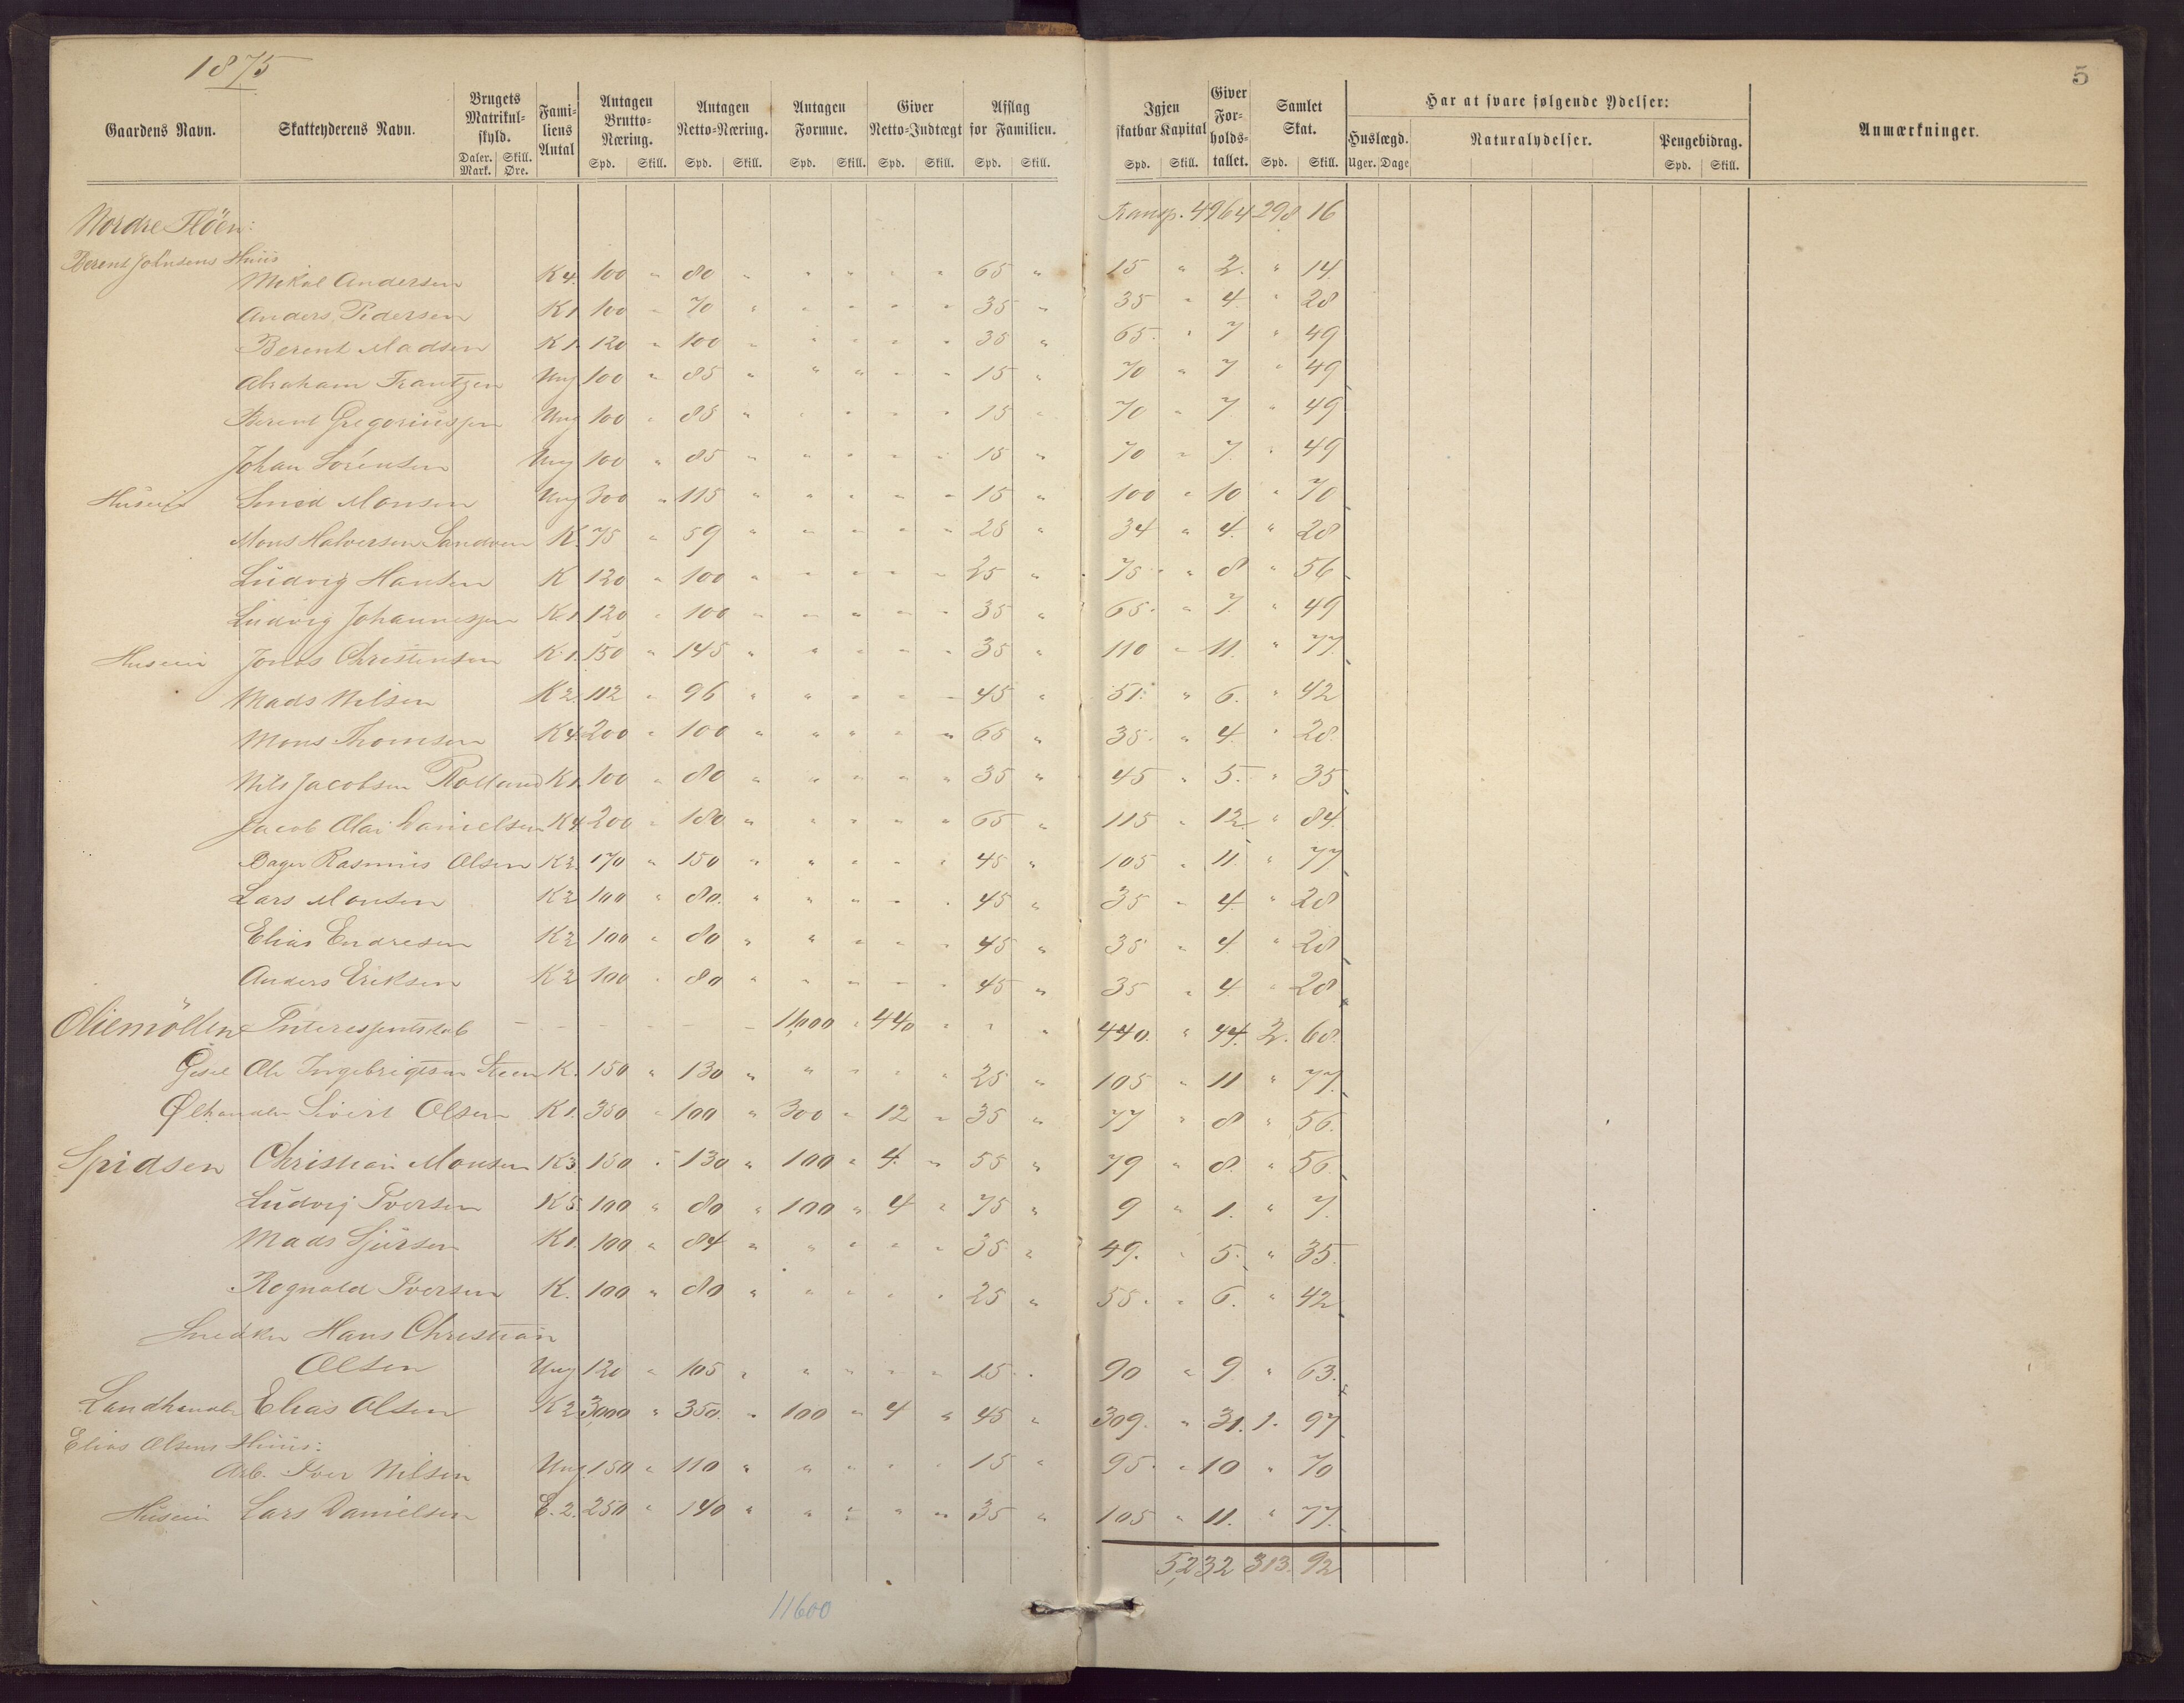 1875
5
Gaardens Navn. Skatteyderens Navn. Brugets Matrikulskyld. Daler. Mark. Skill. Øre. Familiens Antal Antagen Brutto-Næring. Spd. Skill. Antagen Netto-Næring. Spd. Skill. Antagen Formue. Spd. Skill. Giver Netto-Indtægt Spd. Skill. Afslag for Familien. Spd. Skill. Igjen skatbar Kapital Spd. Skill. Giver Forholdstallet. Samlet Skat. Spd. Skill. Har at svare følgende Ydelser: Huslægd. Uger. Dage Naturalydelser. Pengebidrag. Spd. Skill. Anmærkninger.
Nordre Flöen: Transp. 4964 298 16
Berent Johnsens Huus
Mikal Andersen K 4. 100 " 80 " " " " " 65 " 15 " 2. " 14
Anders Pedersen K 1 100 " 70 " " " " " 35 " 35 " 4 " 28
Berent Madsen K 1. 120 " 100 " " " " " 35 " 65. " 7 " 49
Abraham Frantzen Ung 100 " 85 " " " " " 15 " 70 " 7 " 49
Berent Gregoriussen Ung 100 " 85 " " " " " 15 " 70 " 7. " 49
Johan Sörensen Ung 100 " 85 " " " " " 15 " 70 " 7. " 49
Huseier Smed Monsen Ung 300 " 115 " " " " " 15 " 100 " 10 " 70
Mons Halversen Sandven K. 75 " 59 " " " " " 25 " 34 " 4. " 28
Ludvig Hansen K 120 " 100 " " " " " 25 " 75 " 8 " 56
Ludvig Johannessen K 1 120 " 100 " " " " " 35 " 65. " 7. " 49
Huseier Jonas Christensen K 1. 150 " 145 " " " " " 35 " 110 " 11. " 77.
Mads Nilsen K 2. 112 " 96 " " " " " 45 " 51. " 6. " 42
Mons Thomsen K 4. 200 " 100 " " " " " 65 " 35. " 4. " 28.
Nils Jacobsen Rolland K 1. 100 " 80 " " " " " 35 " 45 " 5. " 35
Jacob Olai Danielsen K 4. 200 " 180 " " " " " 65 " 115 " 12. " 84.
Bager Rasmus Olsen K 2. 170 " 150 " " " " " 45 " 105 " 11. " 77
Lars Monsen K 2 100 " 80. " " " " " 45 " 35 " 4. " 28
Elias Endresen K 2 100 " 80 " " " " " 45 " 35 " 4. " 28
Anders Eriksen K 2 100 " 80 " " " " " 45 " 35 " 4. " 28
Oliemöllen Interessentskab 11,000 " 440 " " " 440. " 44. 2. 68.
Ole Ingebrigtsen Steen K. 150 " 130 " " " " " 25 " 105 " 11 " 77.
Ølhandler Sivert Olsen K 1. 350 " 100 " 300 " 12 " 35 " 77 " 8 " 56.
Spidsen Christian Monsen K 3. 150 " 130 " 100 " 4. " 55 " 79 " 8. " 56.
Ludvig Iversen K 5. 100 " 80 " 100 " 4 " 75 " 9 " 1. " 7.
Mads Sjursen K 1. 100 " 84 " " " " " 35 " 49. " 5. " 35.
Rognald Iversen K. 100 " 80 " " " " " 25 " 55. " 6. " 42
Snedker Hans Christian
Olsen Ung 120 " 105 " " " " " 15. " 90 " 9. " 63.
Landhandler Elias Olsen K 2 3000 " 350. " 100 " 4 " 45 " 309. " 31. 1. 97
Elias Olsens Huus:
Arb. Iver Nilsen Ung. 150 " 110 " " " " " 15 " 95. " 10 " 70
Huseier Lars Danielsen E. 2. 250 " 140 " " " " " 35 " 105 " 11. " 77.
5,232 313. 92
11600